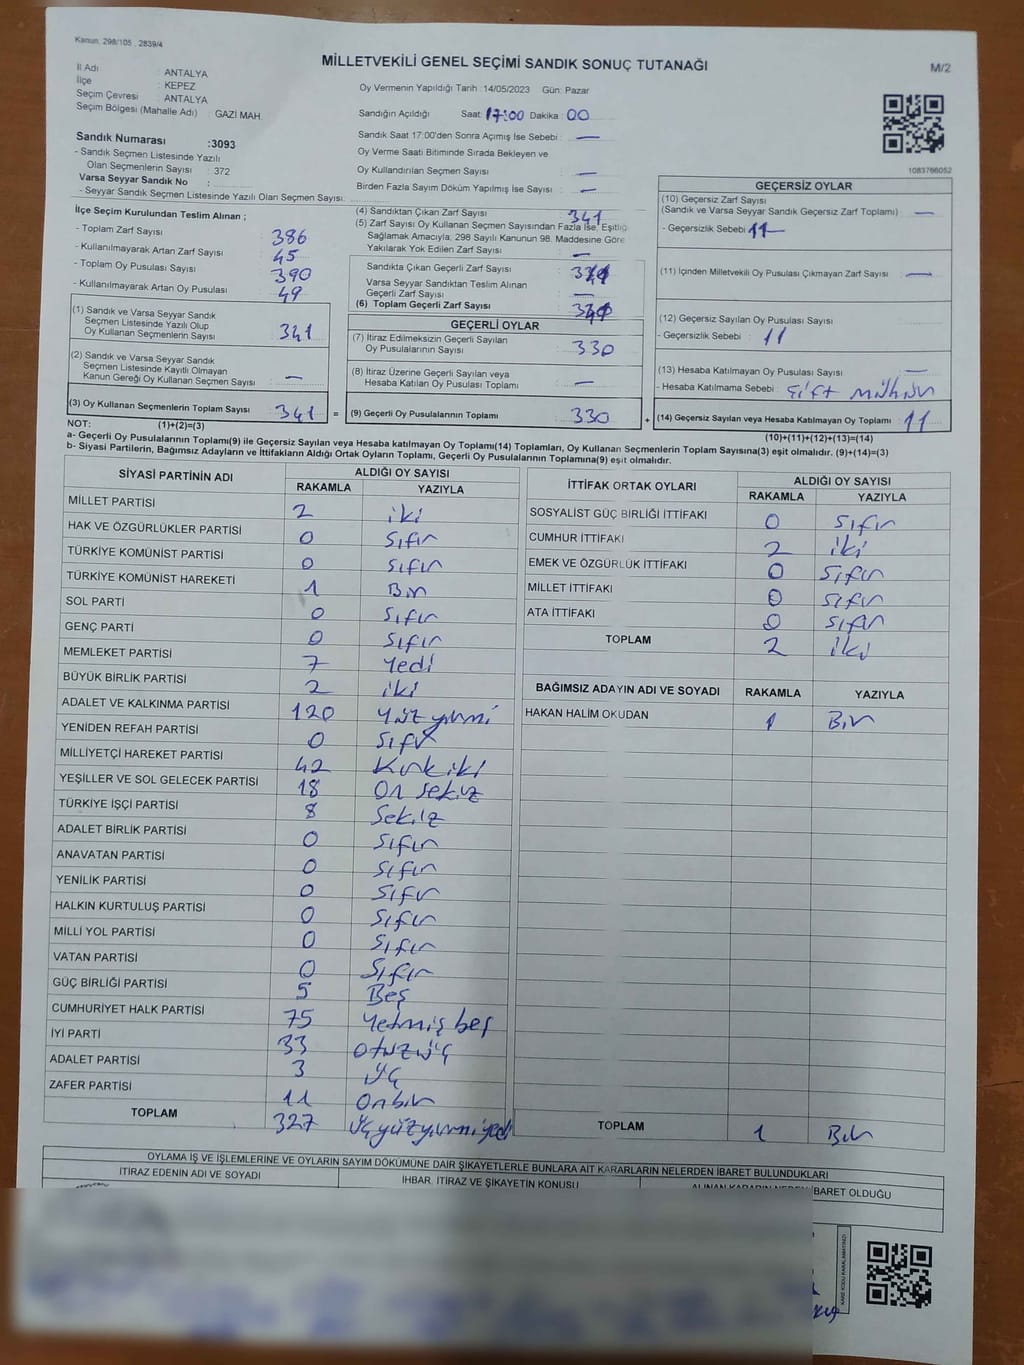 Kanun, 298/105 , 2839/4
MİLLETVEKİLİ GENEL SEÇİMİ SANDIK SONUÇ TUTANAĞI
M/2
İl Adı : ANTALYA
İlçe : KEPEZ
Seçim Çevresi : ANTALYA
Seçim Bölgesi (Mahalle Adı) : GAZİ MAH.
Oy Vermenin Yapıldığı Tarih :14/05/2023 Gün: Pazar
Sandığın Açıldığı Saat: 17:00 Dakika : 00
Sandık Saat 17:00'den Sonra Açımış İse Sebebi : —
Oy Verme Saati Bitiminde Sırada Bekleyen ve
Oy Kullandırılan Seçmen Sayısı : —
Birden Fazla Sayım Döküm Yapılmış İse Sayısı : —
1083766052
Sandık Numarası :3093
- Sandık Seçmen Listesinde Yazılı
Olan Seçmenlerin Sayısı : 372
Varsa Seyyar Sandık No :
- Seyyar Sandık Seçmen Listesinde Yazılı Olan Seçmen Sayısı:
İlçe Seçim Kurulundan Teslim Alınan ;
- Toplam Zarf Sayısı : 386
- Kullanılmayarak Artan Zarf Sayısı : 45
- Toplam Oy Pusulası Sayısı : 390
- Kullanılmayarak Artan Oy Pusulası : 49
(1) Sandık ve Varsa Seyyar Sandık
Seçmen Listesinde Yazılı Olup
Oy Kullanan Seçmenlerin Sayısı : 341
(2) Sandık ve Varsa Seyyar Sandık
Seçmen Listesinde Kayıtlı Olmayan
Kanun Gereği Oy Kullanan Seçmen Sayısı : —
(3) Oy Kullanan Seçmenlerin Toplam Sayısı : 341 =
(4) Sandıktan Çıkan Zarf Sayısı : 341
(5) Zarf Sayısı Oy Kullanan Seçmen Sayısından Fazla İse, Eşitliği
Sağlamak Amacıyla, 298 Sayılı Kanunun 98. Maddesine Göre
Yakılarak Yok Edilen Zarf Sayısı : —
Sandıkta Çıkan Geçerli Zarf Sayısı : 341
Varsa Seyyar Sandıktan Teslim Alınan
Geçerli Zarf Sayısı : —
(6) Toplam Geçerli Zarf Sayısı : 341
GEÇERLİ OYLAR
(7) İtiraz Edilmeksizin Geçerli Sayılan
Oy Pusulalarının Sayısı : 330
(8) İtiraz Üzerine Geçerli Sayılan veya
Hesaba Katılan Oy Pusulası Toplamı : —
(9) Geçerli Oy Pusulalarının Toplamı : 330 +
GEÇERSİZ OYLAR
(10) Geçersiz Zarf Sayısı
(Sandık ve Varsa Seyyar Sandık Geçersiz Zarf Toplamı) : —
- Geçersizlik Sebebi : 11
(11) İçinden Milletvekili Oy Pusulası Çıkmayan Zarf Sayısı : —
(12) Geçersiz Sayılan Oy Pusulası Sayısı :
- Geçersizlik Sebebi : 11
(13) Hesaba Katılmayan Oy Pusulası Sayısı : —
- Hesaba Katılmama Sebebi : Çift mühür
(14) Geçersiz Sayılan veya Hesaba Katılmayan Oy Toplamı : 11
NOT: (1)+(2)=(3)
(10)+(11)+(12)+(13)=(14)
a- Geçerli Oy Pusulalarının Toplamı(9) ile Geçersiz Sayılan veya Hesaba katılmayan Oy Toplamı(14) Toplamları, Oy Kullanan Seçmenlerin Toplam Sayısına(3) eşit olmalıdır. (9)+(14)=(3)
b- Siyasi Partilerin, Bağımsız Adayların ve İttifakların Aldığı Ortak Oyların Toplamı, Geçerli Oy Pusulalarının Toplamına(9) eşit olmalıdır.
SİYASİ PARTİNİN ADI ALDIĞI OY SAYISI
RAKAMLA YAZIYLA
MİLLET PARTİSİ 2 iki
HAK VE ÖZGÜRLÜKLER PARTİSİ 0 Sıfır
TÜRKİYE KOMÜNİST PARTİSİ 0 Sıfır
TÜRKİYE KOMÜNİST HAREKETİ 1 Bir
SOL PARTİ 0 Sıfır
GENÇ PARTİ 0 Sıfır
MEMLEKET PARTİSİ 7 Yedi
BÜYÜK BİRLİK PARTİSİ 2 iki
ADALET VE KALKINMA PARTİSİ 120 Yüz yirmi
YENİDEN REFAH PARTİSİ 0 Sıfır
MİLLİYETÇİ HAREKET PARTİSİ 42 Kırk iki
YEŞİLLER VE SOL GELECEK PARTİSİ 18 On sekiz
TÜRKİYE İŞÇİ PARTİSİ 8 Sekiz
ADALET BİRLİK PARTİSİ 0 Sıfır
ANAVATAN PARTİSİ 0 Sıfır
YENİLİK PARTİSİ 0 Sıfır
HALKIN KURTULUŞ PARTİSİ 0 Sıfır
MİLLİ YOL PARTİSİ 0 Sıfır
VATAN PARTİSİ 0 Sıfır
GÜÇ BİRLİĞİ PARTİSİ 5 Beş
CUMHURİYET HALK PARTİSİ 75 Yetmiş beş
İYİ PARTİ 33 Otuz üç
ADALET PARTİSİ 3 Üç
ZAFER PARTİSİ 11 Onbir
TOPLAM 327 Üçyüzyirmiyedi
İTTİFAK ORTAK OYLARI ALDIĞI OY SAYISI
RAKAMLA YAZIYLA
SOSYALİST GÜÇ BİRLİĞİ İTTİFAKI 0 Sıfır
CUMHUR İTTİFAKI 2 iki
EMEK VE ÖZGÜRLÜK İTTİFAKI 0 Sıfır
MİLLET İTTİFAKI 0 Sıfır
ATA İTTİFAKI 0 Sıfır
TOPLAM 2 iki
BAĞIMSIZ ADAYIN ADI VE SOYADI RAKAMLA YAZIYLA
HAKAN HALİM OKUDAN 1 Bir
TOPLAM 1 Bir
OYLAMA İŞ VE İŞLEMLERİNE VE OYLARIN SAYIM DÖKÜMÜNE DAİR ŞİKAYETLERLE BUNLARA AİT KARARLARIN NELERDEN İBARET BULUNDUKLARI
İTİRAZ EDENİN ADI VE SOYADI İHBAR, İTİRAZ VE ŞİKAYETİN KONUSU ALINAN KARARIN NEDEN İBARET OLDUĞU